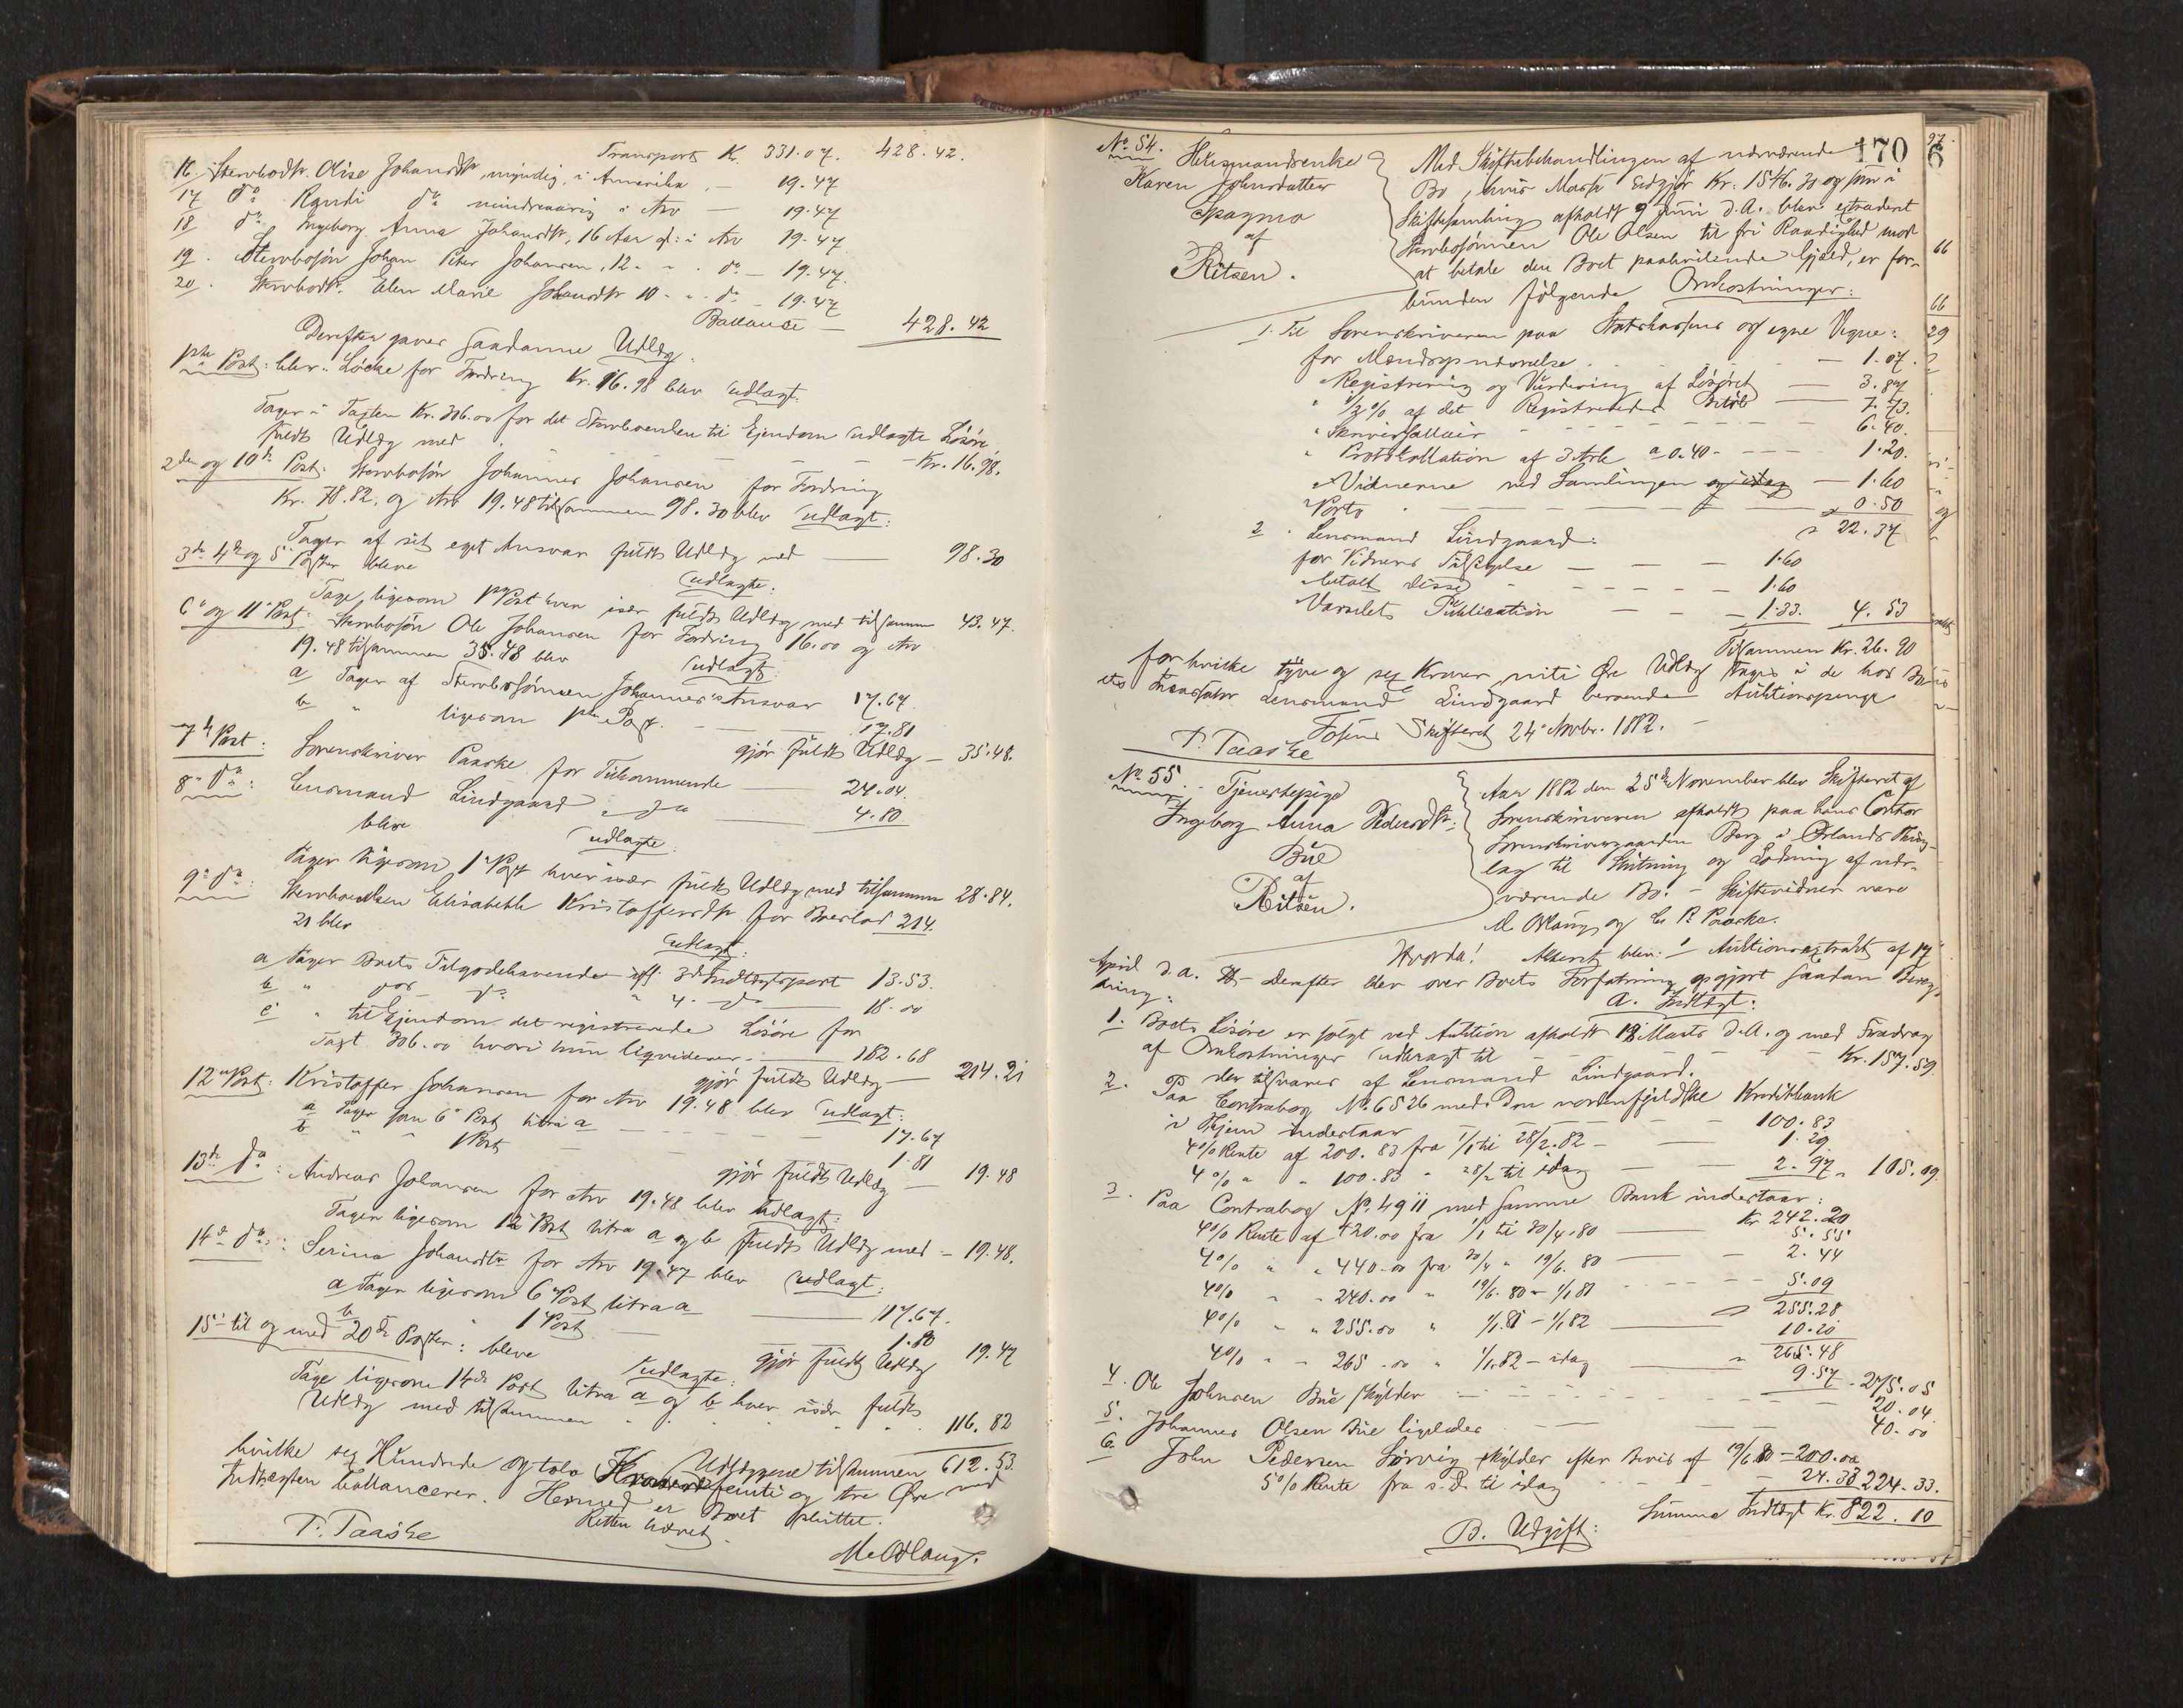 Transport K. 331.07. 428.42.
16. Stervbodtr. Olise Johansdtr, myndig, i Amerika, — 19.47
17 do Ragndi do mindreaarig i Arv — 19.47
18 do Ingeborg Anna Johansdtr, 16 Aar gl: i Arv 19.47
19. Stervbosøn Johan Peter Johansen, 12 " " do — 19.47
20. Stervbodtr. Elen Marie Johansdtr 10 " " do — 19.47
Ballance — 428.42
Derefter gaves saadanne Udlæg:
1ste Post: blev Løcke for Fordring Kr. 16.98 blev udlagt:
Tager i Taxten Kr. 306.00 for det Stervboenken til Ejendom udlagte Løsøre
fuldt Udlæg med — Kr. 16.98.
2den og 10de Post: Stervbosøn Johannes Johansen for Fordring
Kr. 78.82. og Arv 19.48 tilsammen 98.30 blev udlagt:
Tager af sit eget Ansvar fuldt Udlæg med — 98.30
3de 4de og 5 Poster bleve udlagte:
Tage, ligesom 1ste Post hver især fuldt Udlæg med tilsammen 43.47.
6te og 11te Post: Stervbosøn Ole Johansen for Fordring 16.00 og Arv
19.48 tilsammen 35.48 blev udlagt:
a Tager af Stervbosønnen Johannes's Ansvar 17.67
b " ligesom 1ste Post — 17.81
gjør fuldt Udlæg — 35.48.
7de Post: Sorenskriver Paaske for Tilkommende — 24.04.
8de do: Lensmand Lindgaard " do — 4.80
bleve udlagte:
Tager ligesom 1ste Post hver især fuldt Udlæg med tilsammen 28.84.
9de do: Stervboenken Elisabeth Kristoffersdtr for Boeslod 214.
21 blev udlagt:
a Tager Boets Tilgodehavende iflg 3de Indtægtspost 13.53.
b " do do " 4. do — 18.00
c " til Ejendom det registrerede Løsøre for
Taxt 306.00 hvori hun liqviderer — 182.68
gjør fuldt Udlæg — 214.21
12te Post: Kristoffer Johansen for Arv 19.48 blev udlagt:
a Tager som 6te Post litra a — 17.67
b " " 1 Post — 1.81
gjør fuldt Udlæg — 19.48
13de do: Andreas Johansen for Arv 19.48 blev udlagt:
Tager ligesom 12te Post litra a og b fuldt Udlæg med — 19.48.
14de do: Serina Johansdtr for Arv 19.47 blev udlagt:
a Tager ligesom 6te Post litra a — 17.67.
b " 1 Post — 1.80
gjør fuldt Udlæg 19.47
15de til og med 20de Poster: bleve udlagte:
Tage ligesom 14de Post litra a og b hver især fuldt
Udlæg med tilsammen 116.82
Udlæggene tilsammen 612.53.
hvilke sex Hundrede og tolv Kroner femti og tre Øre med
Indtægten ballancerer. Hermed er Boet sluttet.
Retten hævet.
P. Paaske
M. Ørlaug.
170
No 54. Huusmandsenke
Karen Johnsdatter
Spagmo
af
Ritsen.
Med Skiftebehandlingen af nærværende
Bo, hvis Masse udgjør Kr: 1546.30 og som i
Skiftesamling afholdt 9 Juni d.A. blev extraderet
Stervbosønnen Ole Olsen til fri Raadighed mod
at betale den Boet paahvilende Gjæld, er for-
bunden følgende Omkostninger:
1. Til Sorenskriveren paa Statskassens og egne Vegne:
for Mændsopnævnelse — 1.07.
" Registrering og Vurdering af Løsøret — 3.87
" 1/2 % af det Registreredes Beløb — 7.73.
" Skriversallair — 6.40.
" Protokollation af 3 Ark a 0.40 — 1.20.
" Vidnerne ved Samlingen og idag — 1.60
" Porto — 0.50
22.37
2. Lensmand Lindgaard:
for Vidners Tilsigelse — 1.60
betalt disse — 1.60
Varselets Publication — 1.33. 4.53
Tilsammen Kr. 26.90
for hvilke tyve og sex Kroner niti Øre Udlæg tages i de hos Bo-
ets Incassator Lensmand Lindgaard beroende Auktionspenge
Fosens Skifteret 24de Novbr. 1882.
P. Paaske
No 55. Tjenestepige
Ingeborg Anna Pedersdtr:
Bue
af
Ritsen.
Aar 1882 den 25de November blev Skifteret af
Sorenskriveren afholdt paa hans Contor
Sorenskrivergaarden Berg i Ørlands Thing-
lag til Slutning og Lodning af nær-
værende Bo. — Skiftevidner vare
M Ørlaug og C. P. Paaske.
Hvorda! Alleerst blev: Auktionsextrakt af 17
April d.A. Derefter blev over Boets Forfatning opgjort saadan Bereg-
ning:
A. Indtægt:
1. Boets Løsøre er solgt ved Auktion afholdt 18 Marts d.A. og med Fradrag
af Omkostninger udbragt til — Kr. 157.59
der tilsvares af Lensmand Lindgaard.
2. Paa Contrabog No. 6526 med Den nordenfjeldske Kreditbank
i Thjem indestaar — 100.83
4% Rente af 200.83 fra 1/1 til 28/2.82 — 1.29
4% " " 100.83 " 28/2 til idag — 2.97 " 105.09.
3. Paa Contrabog No. 4911 med samme Bank indestaar:
Kr 242.20
4% Rente af 420.00 fra 1/1 til 30/4.80 — 5.55
4% " " 440.00 fra 30/4 " 19/6.80 — 2.44
4% " " 240.00 " 19/6.80 — 1/1 81 — 5.09
255.28
4% " " 255.00 " 1/1.81 — 1/1.82 — 10.20
265.48
4% " " 265.00 " 1/1.82 — idag — 9.57 275.05
4. Ole Johnsen Bue skylder — 20.04.
5. Johannes Olsen Bue ligeledes — 40.00
6. John Pedersen Sørvig skylder efter Bevis af 19/6 80 — 200.00
5% Rente fra s.D. til idag — 24.33 224.33.
Summa Indtægt Kr. 822.10
B. Udgift: